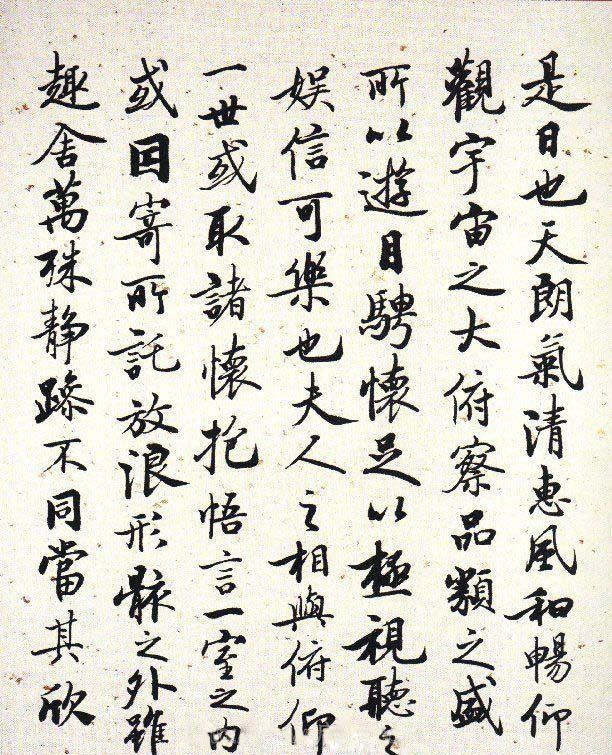 是日也天朗氣清惠風和暢仰
觀宇宙之大俯察品類之盛
所以遊目騁懷足以極視聽之
娱信可樂也夫人之相與俯仰
一世或取諸懷抱悟言一室之内
或因寄所託放浪形骸之外雖
趣舍萬殊静躁不同當其欣